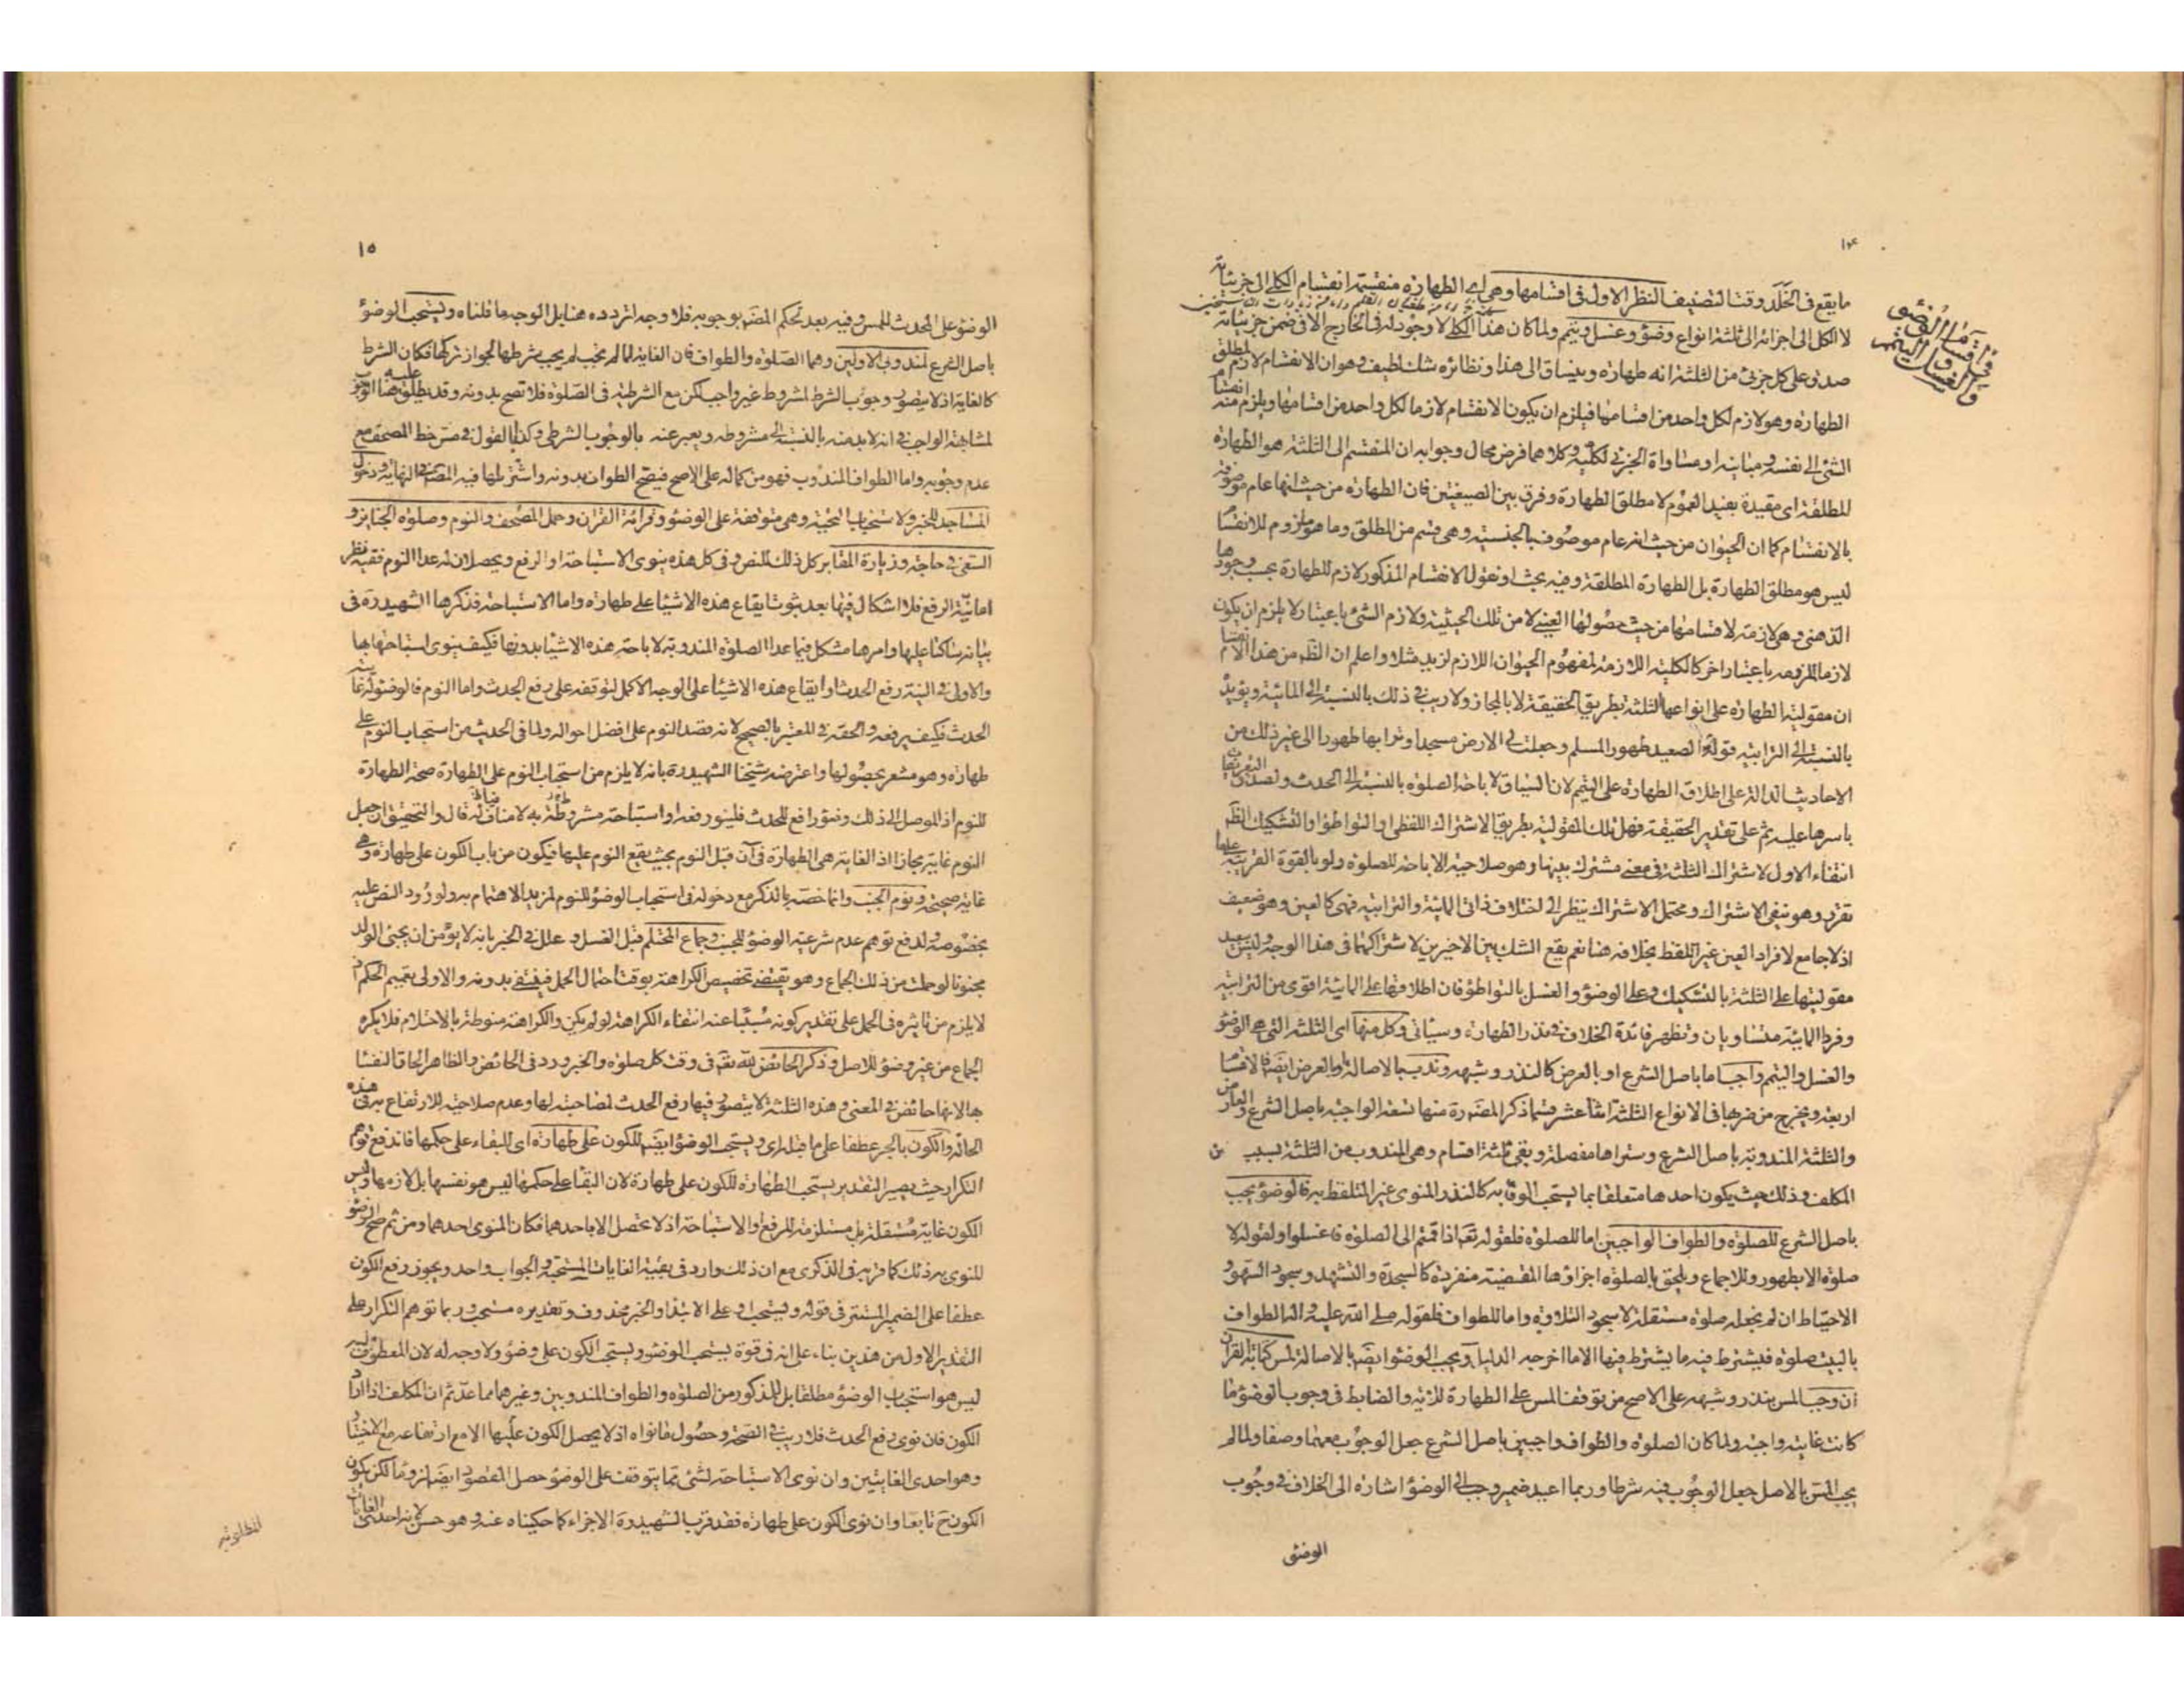 ١٤
في اقسام الوضوء
والغسل والتيمم
ما يقع في الخلد وقت التصنيف النظر الاول في اقسامها وهي اي الطهارة منقسمة انقسام الكلي الى جزئياته
لا الكل الى اجزائه الى ثلثة انواع وضوء وغسل وتيمم ولما كان هذا الكلي لا وجود له في الخارج الا في ضمن جزئياته
صدق على كل جزئي من الثلثة انه طهارة وينساق الى هذا ونظائره شك لطيف وهو ان الانقسام لازم لمطلق
الطهارة وهو لازم لكل واحد من اقسامها فيلزم ان يكون الانقسام لازما لكل واحد من اقسامها ويلزم منه انقسام
الشئ الى نفسه ومباينه او مساواة الجزئي لكليه وكلاهما فرض محال وجوابه ان المنقسم الى الثلثة هو الطهارة
المطلقة اى مقيدة بقيد العموم لا مطلق الطهارة وفرق بين الصيغتين فان الطهارة من حيث انها عام موصوفة
بالانقسام كما ان الحيوان من حيث انه عام موصوف بالجنسية وهى قسم من المطلق وما هو ملزوم للانقسام
ليس هو مطلق الطهارة بل الطهارة المطلقة وفيه بحث او نقول الانقسام المذكور لازم للطهارة بحسب وجودها
الذهنى وهى لازمة لاقسامها من حيث حصولها العينى لا من تلك الحيثية ولازم الشئ باعتبار لا يلزم ان يكون
لازما لملزومه باعتبار اخر كالكلية اللازمة لمفهوم الحيوان اللازم لزيد مثلا واعلم ان الظ من هذا الانقسام
ان مقولية الطهارة على انواعها الثلثة بطريق الحقيقة لا بالمجاز ولا ريب في ذلك بالنسبة الى المائية ويؤيده
بالنسبة الى الترابية قوله الصعيد طهور المسلم وجعلت لى الارض مسجدا وترابها طهورا الى غير ذلك من
الاحاديث الدالة على اطلاق الطهارة على التيمم لان السياق لاباحة الصلوة بالنسبة الى الحدث ولصدق التعريفات
باسرها عليه ثم على تقدير الحقيقة فهل تلك المقولية بطريق الاشتراك اللفظى او التواطؤ او التشكيك الظ
انتفاء الاول لاشتراك الثلثة في معنى مشترك بينها وهو صلاحية الاباحة للصلوة ولو بالقوة القريبة
تقرر وهو ينفى الاشتراك ويحتمل الاشتراك بنظر الى اختلاف ذاتى المائية والترابية فهى كالعين وهو ضعيف
اذ لا جامع لافراد العين غير اللفظ بخلافه هنا نعم يقع الشك بين الاخيرين لاشتراكهما في هذا الوجه وليس ببعيد
مقوليتها على الثلثة بالتشكيك وعلى الوضوء والغسل بالتواطؤ فان اطلاقها على المائية اقوى من الترابية
وفردا المائية متساويان وتظهر فائدة الخلاف في نذر الطهارة وسياتى وكل منها اى الثلثة التى هى الوضوء
والغسل والتيمم واجب اما باصل الشرع او بالعرض كالنذر وشبهه وندب بالاصالة او بالعرض ايضا فالاقسام
اربعة ويخرج من ضربها في الانواع الثلثة اثنا عشر قسما ذكر المص ره منها تسعة الواجبة باصل الشرع والعارض
والثلثة المندوبة باصل الشرع وستراها مفصلة وبقى ثلثة اقسام وهى المندوب من الثلثة بسبب من
المكلف وذلك حيث يكون احدها متعلقا بما يستحب الوفاء به كالنذر المنوى غير المتلفظ به فالوضوء يجب
باصل الشرع للصلوة والطواف الواجبين اما للصلوة فلقوله تع اذا قمتم الى الصلوة فاغسلوا ولقوله لا
صلوة الا بطهور وللاجماع ويلحق بالصلوة اجزاؤها المقضية منفردة كالسجدة والتشهد وسجود السهو و
الاحتياط ان لم يجعله صلوة مستقلة لا سجود التلاوة واما للطواف فلقوله صلى الله عليه واله الطواف
بالبيت صلوة فيشترط فيه ما يشترط فيها الا ما اخرجه الدليل ويجب الوضوء ايضا بالاصالة لمس كتابة القران
ان وجب المس بنذر وشبهه على الاصح من توقف المس على الطهارة للاية والضابط في وجوب الوضوء ما
كانت غايته واجبة ولما كان الصلوة والطواف واجبين باصل الشرع جعل الوجوب معهما وصفا ولما لم
يجب المس بالاصل جعل الوجوب فيه شرطا وربما اعيد ضمير وجب الى الوضوء اشارة الى الخلاف في وجوب
الوضوء
١٥
الوضوء على المحدث للمس وفيه بعد تحكم المص بوجوبه فلا وجه لتردده هنا بل الوجه ما قلناه ويستحب الوضوء
باصل الشرع لمندوبى الاولين وهما الصلوة والطواف فان الغاية لما لم تجب لم يجب شرطها لجواز تركها فكان الشرط
كالغاية اذ لا يتصور وجوب الشرط لمشروط غير واجب لكن مع الشرطية في الصلوة فلا تصح بدونه وقد يطلق عليه هنا الوجوب
لمشابهته الواجب في انه لا بد منه بالنسبة الى مشروطه ويعبر عنه بالوجوب الشرطى وكذا القول في مس خط المصحف مع
عدم وجوبه واما الطواف المندوب فهو من كماله على الاصح فيصح الطواف بدونه واشترطها فيه المصنف في النهاية ودخول
المساجد للخبر ولاستحباب التحية وهى متوقفة على الوضوء وقرائة القران وحمل المصحف والنوم وصلوة الجنائز و
السعى في حاجة وزيارة المقابر كل ذلك للنص وفى كل هذه ينوى الاستباحة او الرفع ويحصلان له عدا النوم ففيه نظر
اما نية الرفع فلا اشكال فيها بعد ثبوت ايقاع هذه الاشياء على طهارة واما الاستباحة فذكرها الشهيد ره فى
بيانه ساكتا عليها وامرها مشكل فيما عدا الصلوة المندوبة لاباحة هذه الاشياء بدونها فكيف ينوى استباحتها بها
والاولى في النية رفع الحدث او ايقاع هذه الاشياء على الوجه الاكمل لتوقفه على رفع الحدث واما النوم فالوضوء له غايته
الحدث فكيف يرفعه والحقه في المعتبر بالصحيح لانه قصد النوم على افضل احواله ولما في الحديث من استحباب النوم على
طهارة وهو مشعر بحصولها واعترضه شيخنا الشهيد ره بانه لا يلزم من استحباب النوم على الطهارة صحة الطهارة
للنوم اذ الموصل الى ذلك وضوء رافع للحدث فلينو رفعه او استباحة مشروطة به لا منافية له قال والتحقيق ان جعل
النوم غاية مجازا اذ الغاية هى الطهارة في آن قبل النوم بحيث يقع النوم عليها فيكون من باب الكون على طهارة وهى
غاية صحيحة ونوم الجنب وانما خصه بالذكر مع دخوله في استحباب الوضوء للنوم لمزيد الاهتمام به ولورود النص عليه
بخصوصه ولدفع توهم عدم شرعية الوضوء للجنب وجماع المحتلم قبل الغسل وعلل في الخبر بانه لا يؤمن ان يجئ الولد
مجنونا لو حملت من ذلك الجماع وهو يقتضى تخصيص الكراهة بوقت احتمال الحمل فينتفى بدونه والاولى تعميم الحكم اذ
لا يلزم من تاثيره في الحمل على تقدير كونه مسببا عنه انتفاء الكراهة لو لم يكن والكراهة منوطة بالاحتلام فلا يكره
الجماع من غير وضوء للاصل وذكر الحائض لله تع فى وقت كل صلوة والخبر ورد فى الحائض والظاهر الحاق النفساء
بها لانها حائض في المعنى وهذه الثلثة لا يتصور فيها رفع الحدث لمصاحبته لها وعدم صلاحيته للارتفاع به في هذه
الحالة والكون بالجر عطفا على ما قبله اى ويستحب الوضوء ايضا للكون على طهارة اى للبقاء على حكمها فاندفع توهم
التكرار حيث يصير التقدير يستحب الطهارة للكون على طهارة لان البقاء على حكمها ليس هو نفسها بل لازمها وليس
الكون غاية مستقلة بل مستلزمة للرفع او الاستباحة اذ لا تحصل الا باحدهما فكان المنوى احدهما ومن ثم صح الوضوء
للمنوى به ذلك كما قربه في الذكرى مع ان ذلك وارد فى بقية الغايات المستحبة والجواب واحد ويجوز رفع الكون
عطفا على الضمير المستتر فى قوله ويستحب او على الابتداء والخبر محذوف وتقديره مستحب وربما توهم التكرار على
التقدير الاول من هذين بناء على انه فى قوة يستحب الوضوء ويستحب الكون على وضوء ولا وجه له لان المعطوف عليه
ليس هو استحباب الوضوء مطلقا بل المذكور من الصلوة والطواف المندوبين وغيرهما مما عد ثم ان المكلف اذا اراد
الكون فان نوى رفع الحدث فلا ريب في الصحة وحصول ما نواه اذ لا يحصل الكون عليها الا مع ارتفاعه مع الاختيار
وهو احدى الغايتين وان نوى الاستباحة لشئ مما يتوقف على الوضوء حصل المقصود ايضا لزوما لكن يكون
الكون ح تابعا وان نوى الكون على طهارة فقد قرب الشهيد ره الاجزاء كما حكيناه عنه وهو حسن لانه احدى الغايات
المطلوبة